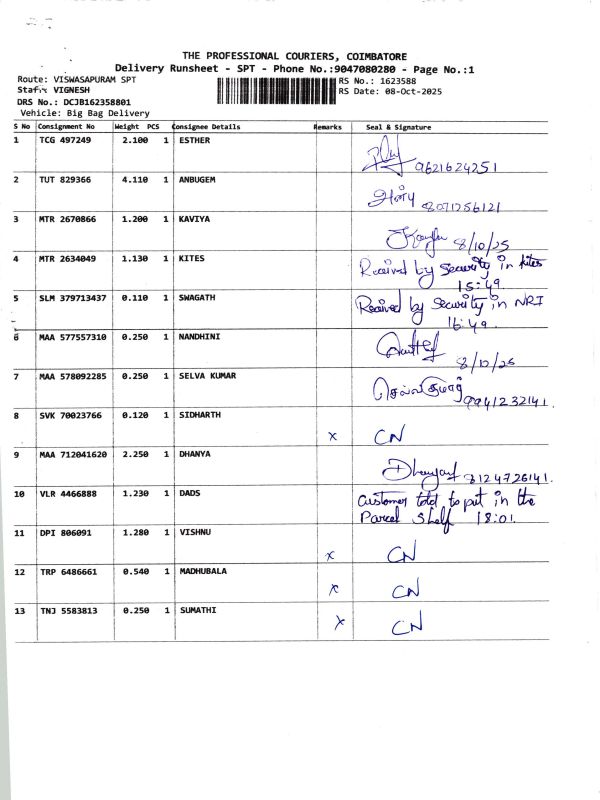 THE PROFESSIONAL COURIERS, COIMBATORE
Delivery Runsheet - SPT - Phone No.:9047080280 - Page No.:1
Route: VISWASAPURAM SPT
RS No.: 1623588
Staff: VIGNESH
RS Date: 08-Oct-2025
DRS No.: DCJB162358801
Vehicle: Big Bag Delivery
S No Consignment No Weight PCS Consignee Details Remarks Seal & Signature
1 TCG 497249 2.100 1 ESTHER 9621624251
2 TUT 829366 4.110 1 ANBUGEM அன்பு 8071256121
3 MTR 2670866 1.200 1 KAVIYA 8/10/25
4 MTR 2634049 1.130 1 KITES Received by Security in kites
15:49
5 SLM 379713437 0.110 1 SWAGATH Received by Security in NRI
16:49
6 MAA 577557310 0.250 1 NANDHINI 8/10/25
7 MAA 578092285 0.250 1 SELVA KUMAR செல்வகுமார் 9941232141
8 SVK 70023766 0.120 1 SIDHARTH x CN
9 MAA 712041620 2.250 1 DHANYA 8124726141
10 VLR 4466888 1.230 1 DADS Customer told to put in the
Parcel Shelf 18:01
11 DPI 806091 1.280 1 VISHNU x CN
12 TRP 6486661 0.540 1 MADHUBALA x CN
13 TNJ 5583813 0.250 1 SUMATHI x CN